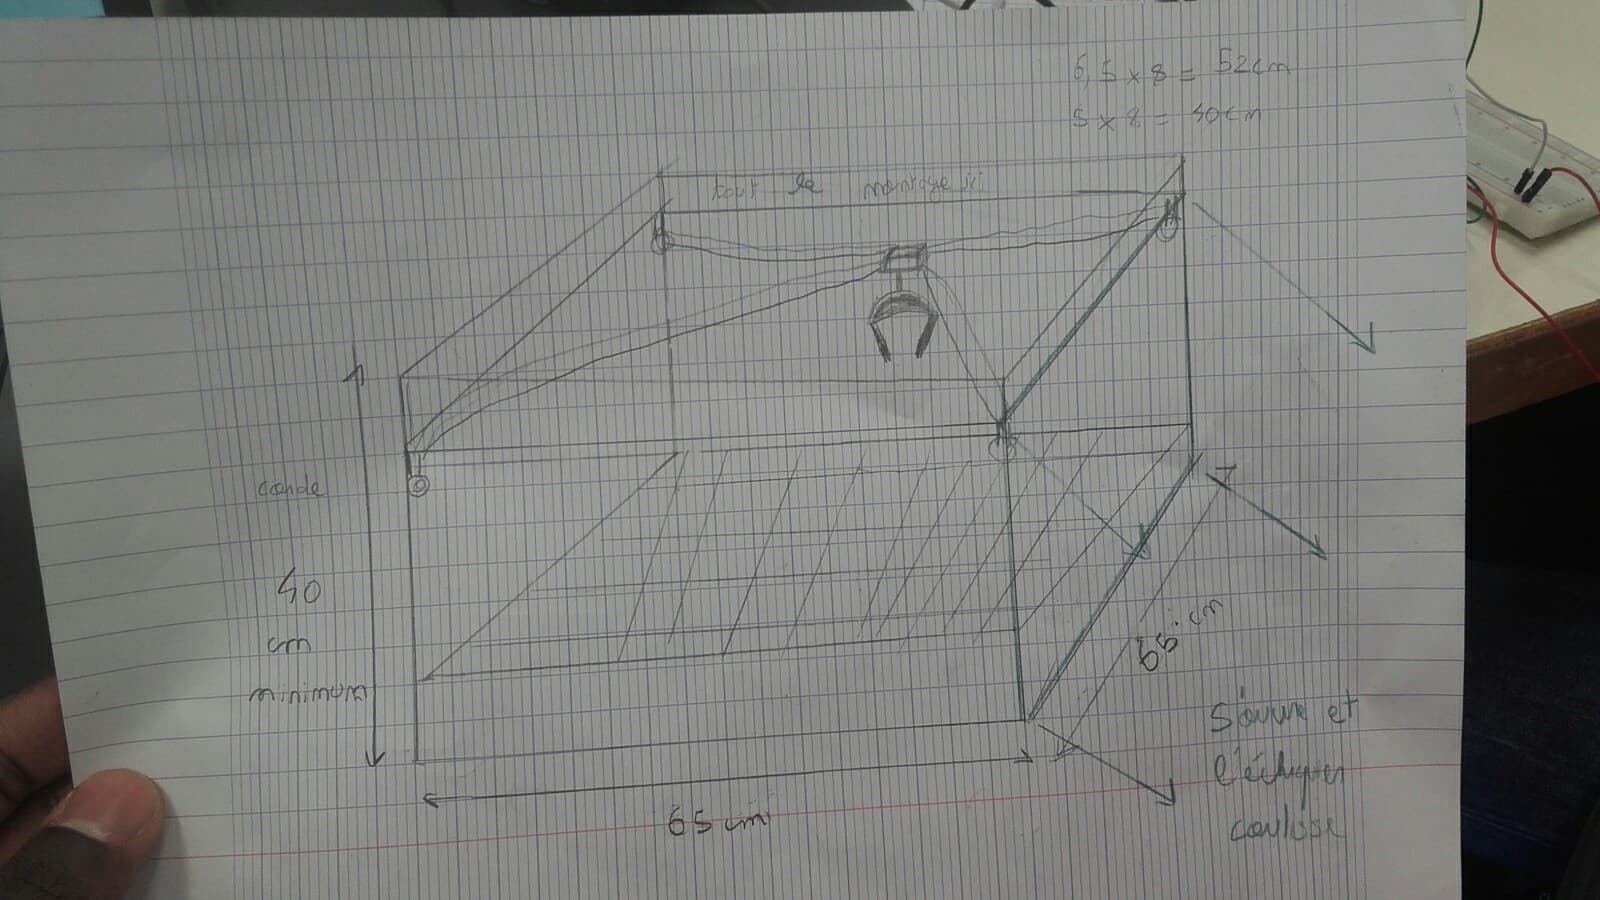 6,5 x 8 = 52cm
5 x 8 = 40cm
tout le montage ici
corde
40
cm
minimum
65 cm
65 cm
S'ouvre et
l'échiquier
coulisse